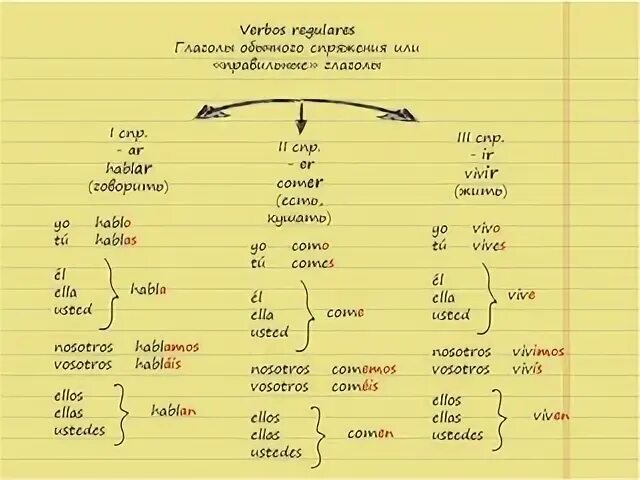 Verbos regulares
Глаголы обычного спряжения или
«правильные» глаголы
I спр.
- ar
hablar
(говорить)
yo hablo
tú hablas
él
ella
usted
habla
nosotros hablamos
vosotros habláis
ellos
ellas
ustedes
hablan
II спр.
- er
comer
(есть,
кушать)
yo como
tú comes
él
ella
usted
come
nosotros comemos
vosotros coméis
ellos
ellas
ustedes
comen
III спр.
- ir
vivir
(жить)
yo vivo
tú vives
él
ella
usted
vive
nosotros vivimos
vosotros vivís
ellos
ellas
ustedes
viven